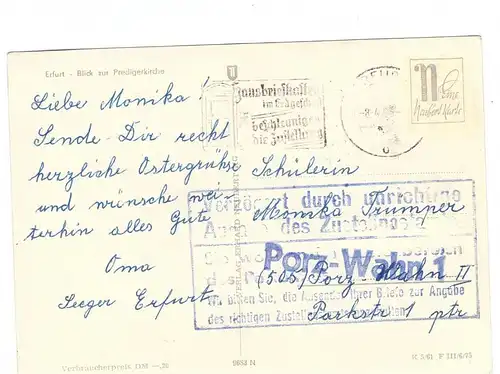 Erfurt - Blick zur Predigerkirche
Liebe Monika!
Sende Dir recht
herzliche Ostergrüße
und wünsche wei-
terhin alles Gute
Oma
Seeger Erfurt
Verbraucherpreis DM
Hausbriefkasten
im Erdgeschoß
beschleunigen
die Zustellung
Schülerin
Monika Trumper
(505) Porz-Wahn II
Parkstr 1 ptr
Verzögert durch unrichtige
des Zustellpostamts
Porz-Wahn 1
Wir bitten Sie, die Absender Ihrer Briefe zur Angabe
des richtigen
K 5/61 F III/6/65